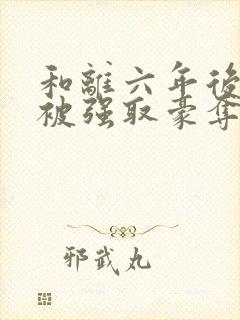 和離六年後
被强取豪奪
邪武丸